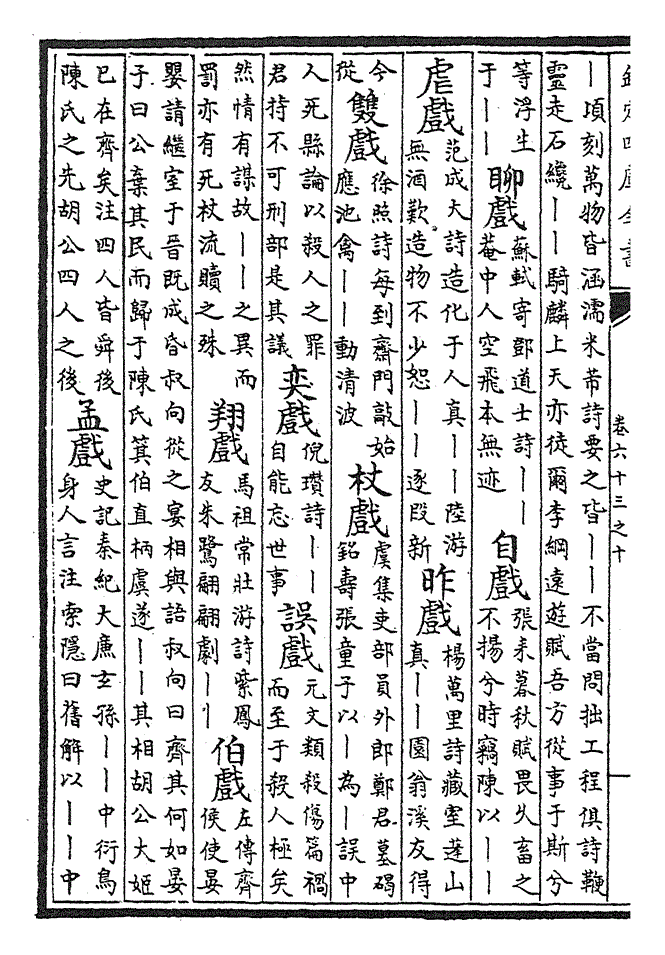 欽定四庫全書
卷六十三之十
丨頃刻萬物皆涵濡米芾詩要之皆丨丨不當問拙工程俱詩鞭
靈走石纔丨丨騎麟上天亦徒爾李綱遠遊賦吾方從事于斯兮
等浮生
于丨丨
聊戲
蘇軾寄鄧道士詩丨丨
菴中人空飛本無迹
自戲
張耒暮秋賦畏久畜之
不揚兮時竊陳以丨丨
虐戲
范成大詩造化于人真丨丨陸游
無酒歎造物不少恕丨丨逐段新
昨戲
楊萬里詩藏室蓬山
真丨丨園翁溪友得
今
從
雙戲
徐照詩每到齋門敲始
應池禽丨丨動清波
杖戲
虞集吏部員外郎鄭君墓碣
銘壽張童子以丨為丨誤中
人死縣論以殺人之罪
君持不可刑部是其議
奕戲
倪瓚詩丨丨
自能忘世事
誤戲
元文類殺傷篇禍
而至于殺人極矣
然情有謀故丨丨之異而
罰亦有死杖流贖之殊
翔戲
馬祖常壯游詩紫鳳
友朱鷺翩翩劇丨丨
伯戲
左傳齊
侯使晏
嬰請繼室于晉既成昏叔向從之宴相與語叔向曰齊其何如晏
子曰公棄其民而歸于陳氏箕伯直柄虞遂丨丨其相胡公大姬
已在齊矣注四人皆舜後
陳氏之先胡公四人之後
孟戲
史記秦紀大廉玄孫丨丨中衍鳥
身人言注索隱曰舊解以丨丨中